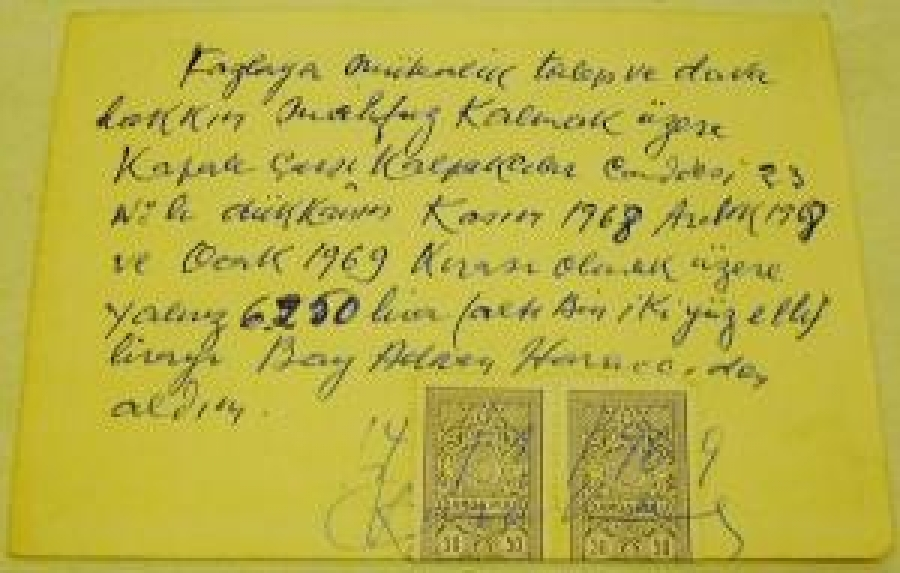 Fazlaya müteallik talep ve dava
hakkım mahfuz Kalmak üzere
Kapalı Çarşı Kalpakcılar Caddesi 23
No lu dükkânın Kasım 1968 Aralık 1968
ve Ocak 1969 Kirası olarak üzere
Yalnız 6250 lira (altı Bin iki yüz elli)
lirayı Bay Adnan den
aldım.
14 9
50 PS 50 50 PS 50